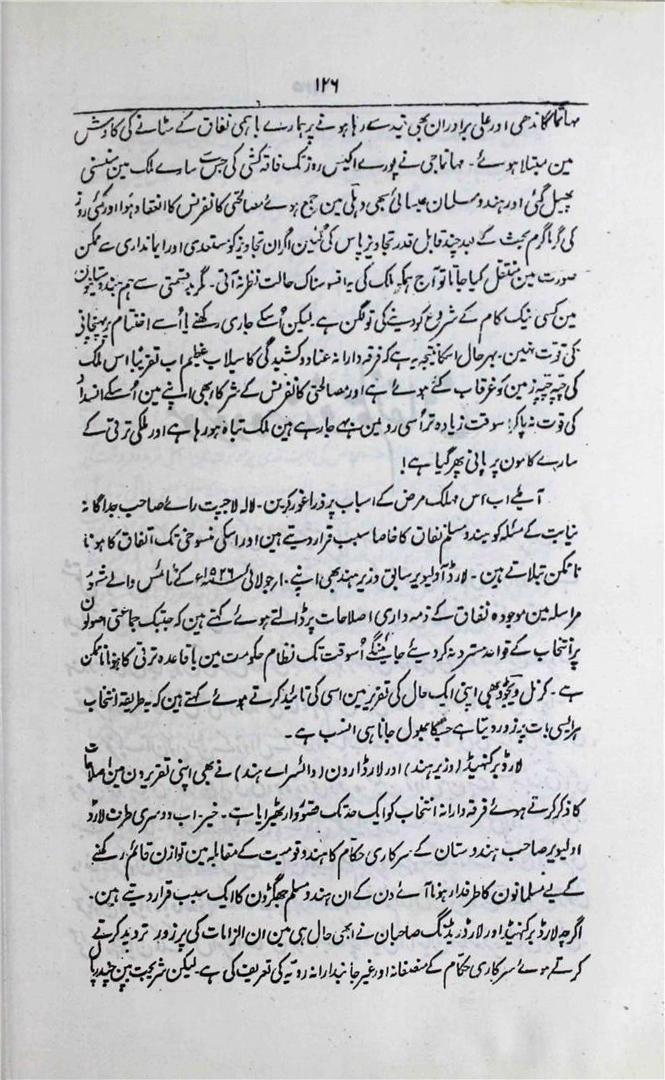 ۱۲۶
مہاتما گاندھی اور علی برادران بھی قید سے رہا ہونے پر ہمارے باہمی نفاق کے مٹانے کی کاوش
مین مبتلا ہوئے۔ مہاتما جی نے پورے اکیس روز تک فاقہ کشی کی جس سے سارے ملک مین سنسنی
پھیل گئی اور ہندو مسلمان عیسائی سبھی دہلی مین جمع ہوئے مصالحتی کانفرنس کا انعقاد ہوا اور کئی روز
کی گرماگرم بحث کے بعد چند قابل قدر تجاویز پاس کی گئین اگر ان تجاویز کو مستعدی اور ایمانداری سے ممکن
صورت مین منتقل کیا جاتا تو آج ہمکو ملک کی یہ افسوسناک حالت نظر نہ آتی۔ مگر بدقسمتی سے ہم ہندوستانیون
مین کسی نیک کام کے شروع کر دینے کی تو ممکن ہے۔ لیکن اُسکے جاری رکھنے یا اُسے اختتام پر پہنچانے
کی قوت نہین۔ بہرحال اسکا نتیجہ یہ ہے کہ فرقہ دارانہ عناد و کشیدگی کا سیلاب عظیم اب تقریباً اس ملک
کی چپہ چپہ زمین کو غرقاب کئے ہوئے ہے اور مصالحتی کانفرنس کے شرکا بھی اپنے مین اُسکے انسداد
کی قوت نہ پاکر اسوقت زیادہ تر اُسی رو مین بہے جا رہے ہین ملک تباہ ہو رہا ہے اور ملکی ترقی کے
سارے کامون پر پانی پھر گیا ہے!
آئیے اب اس مہلک مرض کے اسباب پر ذرا غور کرین۔ لالہ لاجپت رائے صاحب جداگانہ
نیابت کے مسئلہ کو ہندو مسلم نفاق کا خاصا سبب قرار دیتے ہین اور اسکی منسوخی تک اتفاق کا ہونا
ناممکن بتلاتے ہین۔ لارڈ آولیویر سابق وزیر ہند بھی اپنے ۱۰ر جولائی ۱۹۲۶ء کے ٹائمس والے مشہور
مراسلہ مین موجودہ نفاق کے ذمہ داری اصلاحات پر ڈالتے ہوئے کہتے ہین کہ جبتک جماعتی اصولون
پر انتخاب کے قواعد مسترد نہ کر دیے جائینگے اُسوقت تک نظام حکومت مین باقاعدہ ترقی کا ہونا ناممکن
ہے۔ کرنل ویجوڈ بھی اپنی ایک حال کی تقریر مین اسی کی تائید کرتے ہوئے کہتے ہین کہ یہ طریقہ انتخاب
ہر ایسی بات پر زور دیتا ہے جسکا بھول جانا ہی انسب ہے۔
لارڈ برکنہیڈ (وزیر ہند) اور لارڈ اردن (وائسرائے ہند) نے بھی اپنی تقریرون مین اصلاحات
کا ذکر کرتے ہوئے فرقہ دارانہ انتخاب کو ایک حد تک قصور وار ٹھیرایا ہے۔ خیر۔ اب دوسری طرف لارڈ
اولیویر صاحب ہندوستان کے سرکاری حکام کا ہندو قومیت کے مقابلہ مین توازن قائم رکھنے
کے لیے مسلمانون کا طرفدار ہونا آئے دن کے ان ہندو مسلم جھگڑون کا ایک سبب قرار دیتے ہین۔
اگرچہ لارڈ برکنہیڈ اور لارڈ ریڈنگ صاحبان نے ابھی حال ہی مین ان الزامات کی پرزور تردید کرتے
کرتے ہوئے سرکاری حکام کے منصفانہ اور غیر جانبدارانہ رویہ کی تعریف کی ہے۔ لیکن شریجت بپن چندر پال